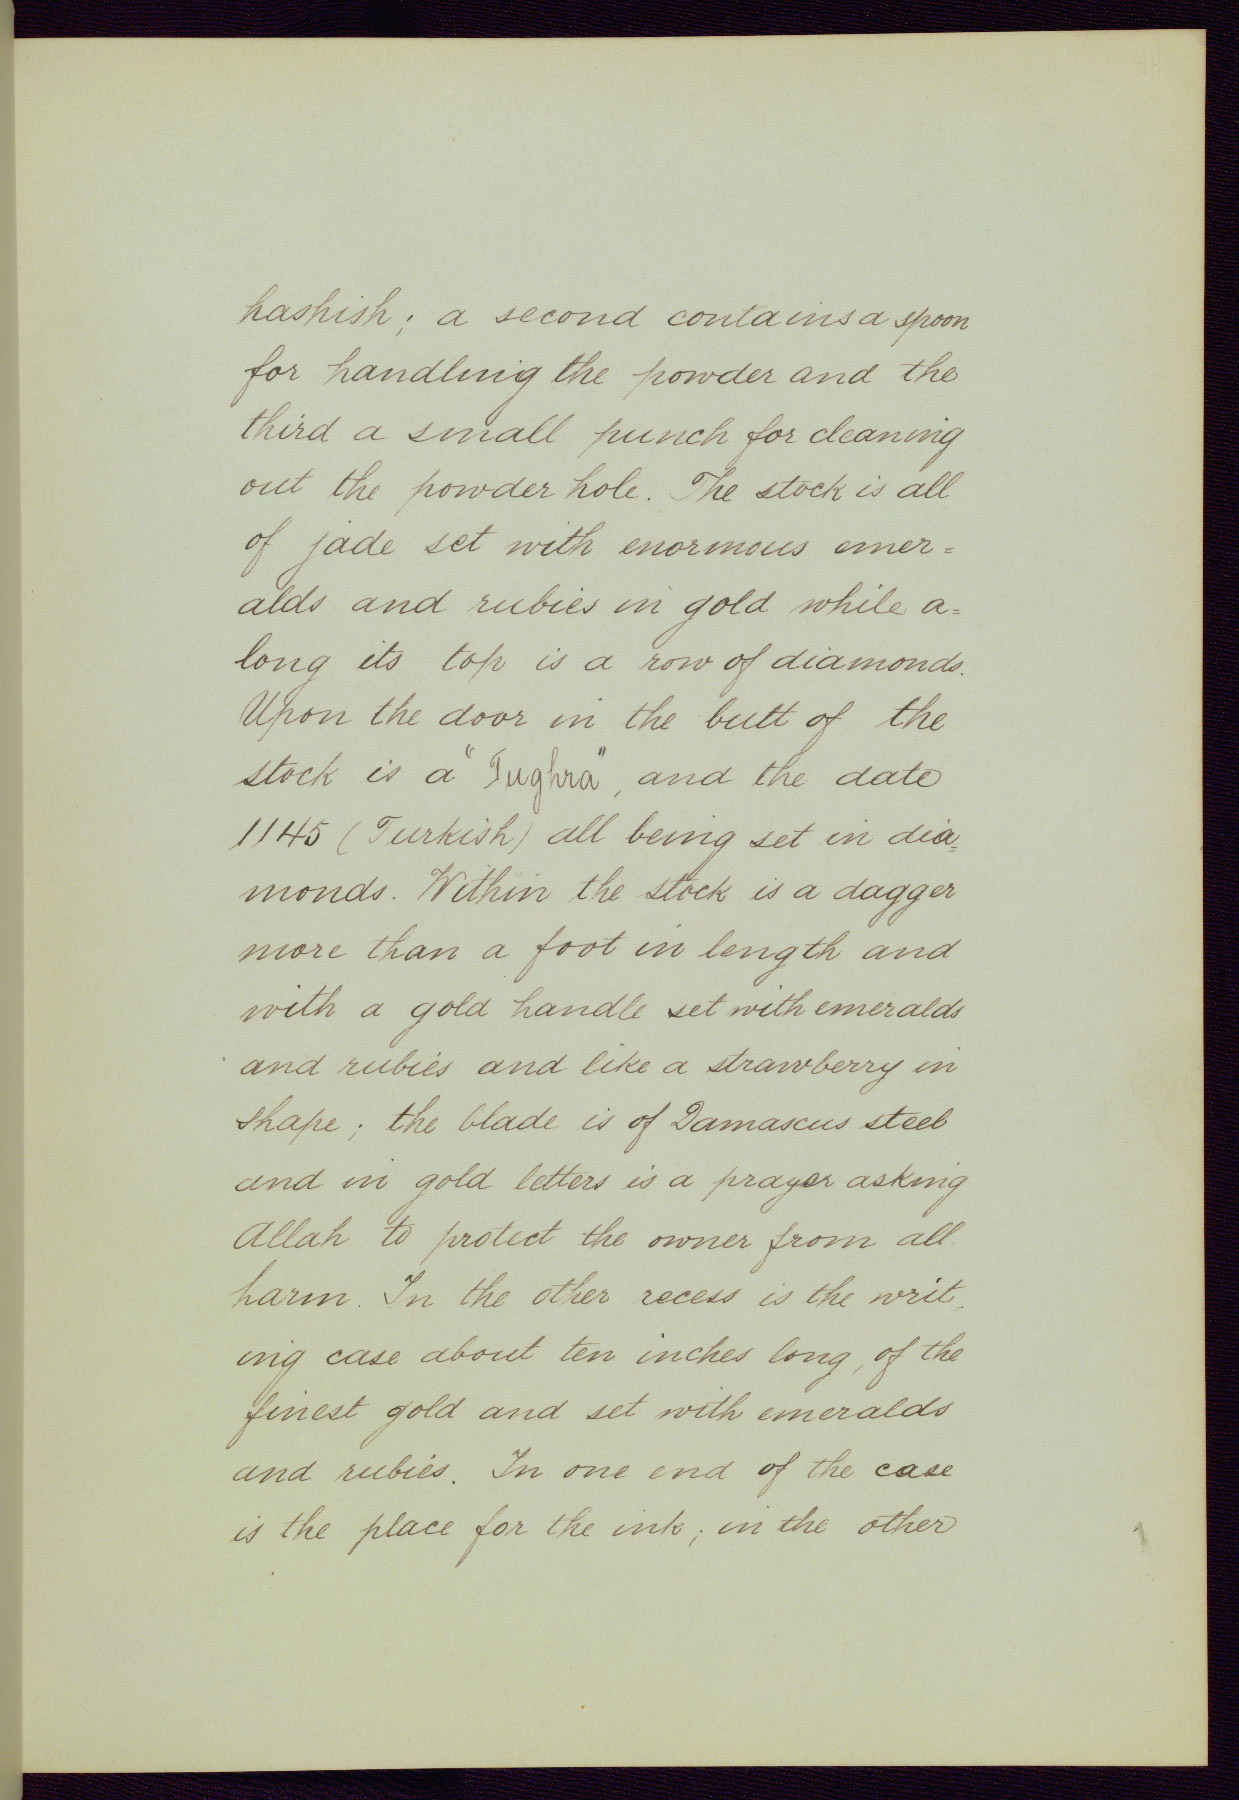 hashish; a second contains a spoon
for handling the powder and the
third a small punch for cleaning
out the powder hole. The stock is all
of jade set with enormous emer=
alds and rubies in gold while a=
long its top is a row of diamonds.
Upon the door in the butt of the
stock is a "Tughra", and the date
1145 (Turkish) all being set in dia=
monds. Within the stock is a dagger
more than a foot in length and
with a gold handle set with emeralds
and rubies and like a strawberry in
shape; the blade is of Damascus steel
and in gold letters is a prayer asking
Allah to protect the owner from all
harm. In the other recess is the writ=
ing case about ten inches long, of the
finest gold and set with emeralds
and rubies. In one end of the case
is the place for the ink; in the other